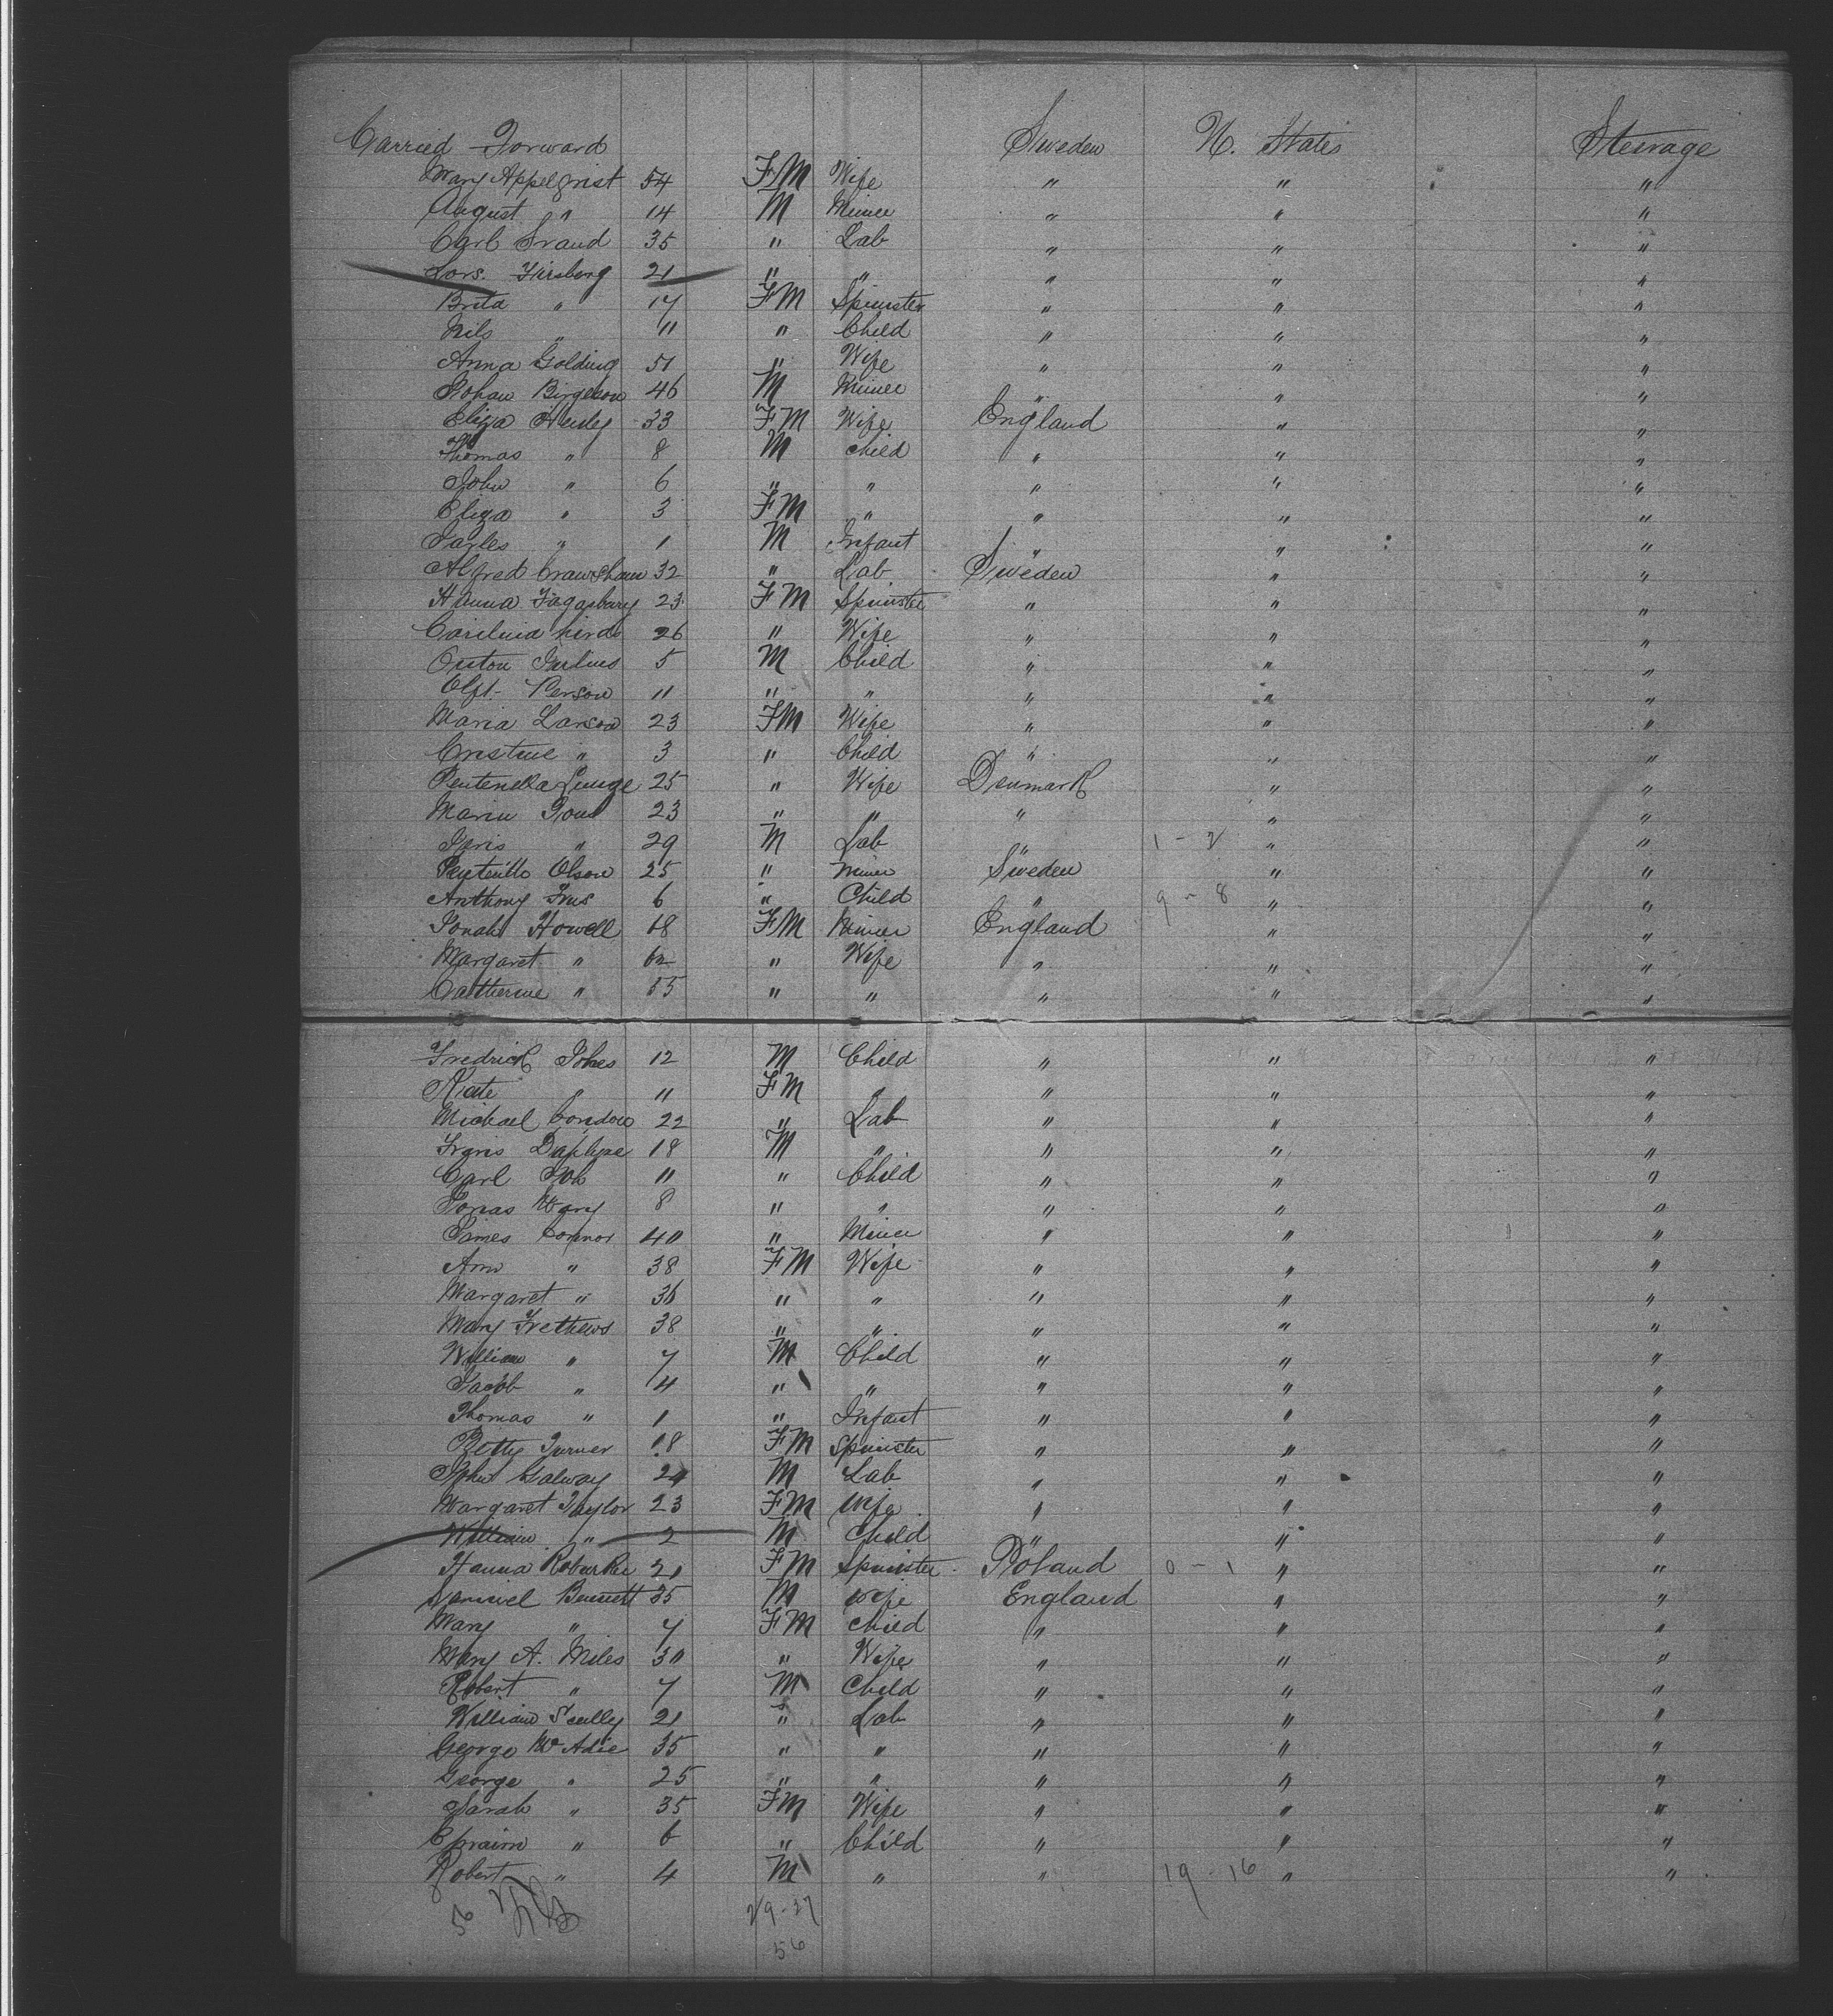 Carried Forward Sweden U. States Steerage
Mary Appelqvist 54 FM Wife " " "
August " 14 M Miner " " "
Carl Srand 35 " Lab " " "
Lars. Firsberg 21 " " " " "
Brita " 17 FM Spinster " " "
Nils " 11 " Child " " "
Anna Golding 51 " Wife " " "
Johan Birgelson 46 M Miner " " "
Eliza Henley 33 FM Wife England " "
Thomas " 8 M child " " "
John " 6 " " " " "
Eliza " 3 FM " " " "
" 1 M Infant " " "
Alfred Crawshaw 32 " Lab Sweden " "
Hanna Fagasbury 23 FM Spinster " " "
26 " Wife " " "
Julius 5 M Child " " "
Person 11 " " " " "
Maria Larson 23 FM Wife " " "
Cristine " 3 " Child " " "
25 " Wife Denmark " "
23 " " " " "
" 29 M Lab " 1 - 2 " "
Olson 25 " miner Sweden " "
Anthony 6 " Child " 9 - 8 " "
Jonah Howell 68 FM Miner England " "
Margaret " 62 " Wife " " "
Catherine " 55 " " " " "
Fredrick Johes 12 M Child " " "
Kate " 11 FM " " " "
Michael Condow 22 " Lab " " "
18 M " " " "
Carl Joh 11 " Child " " "
Jonas Mary 8 " " " " "
James Connor 40 " Miner " " "
Ann " 38 FM Wife " " "
Margaret " 36 " " " " "
Mary Trethews 38 " " " " "
William " 7 M Child " " "
Jacob " 4 " " " " "
Thomas " 1 " Infant " " "
Betty Turner 18 FM Spinster " " "
John Galway 24 M Lab " " "
Margaret Taylor 23 FM Wife " " "
William " 2 M Child " " "
Hanna 21 FM Spinster Poland 0 - 1 " "
Samuel Bennett 35 M Wife England " "
Mary " 7 FM child " " "
Mary A. Miles 30 " Wife " " "
Robert " 7 M Child " " "
William Scully 21 " Lab " " "
George McAdie 35 " " " " "
George " 25 " " " " "
Sarah " 35 FM Wife " " "
Efraim " 6 " Child " " "
Robert " 4 M " " 19 - 16 " "
56 29 - 27
56